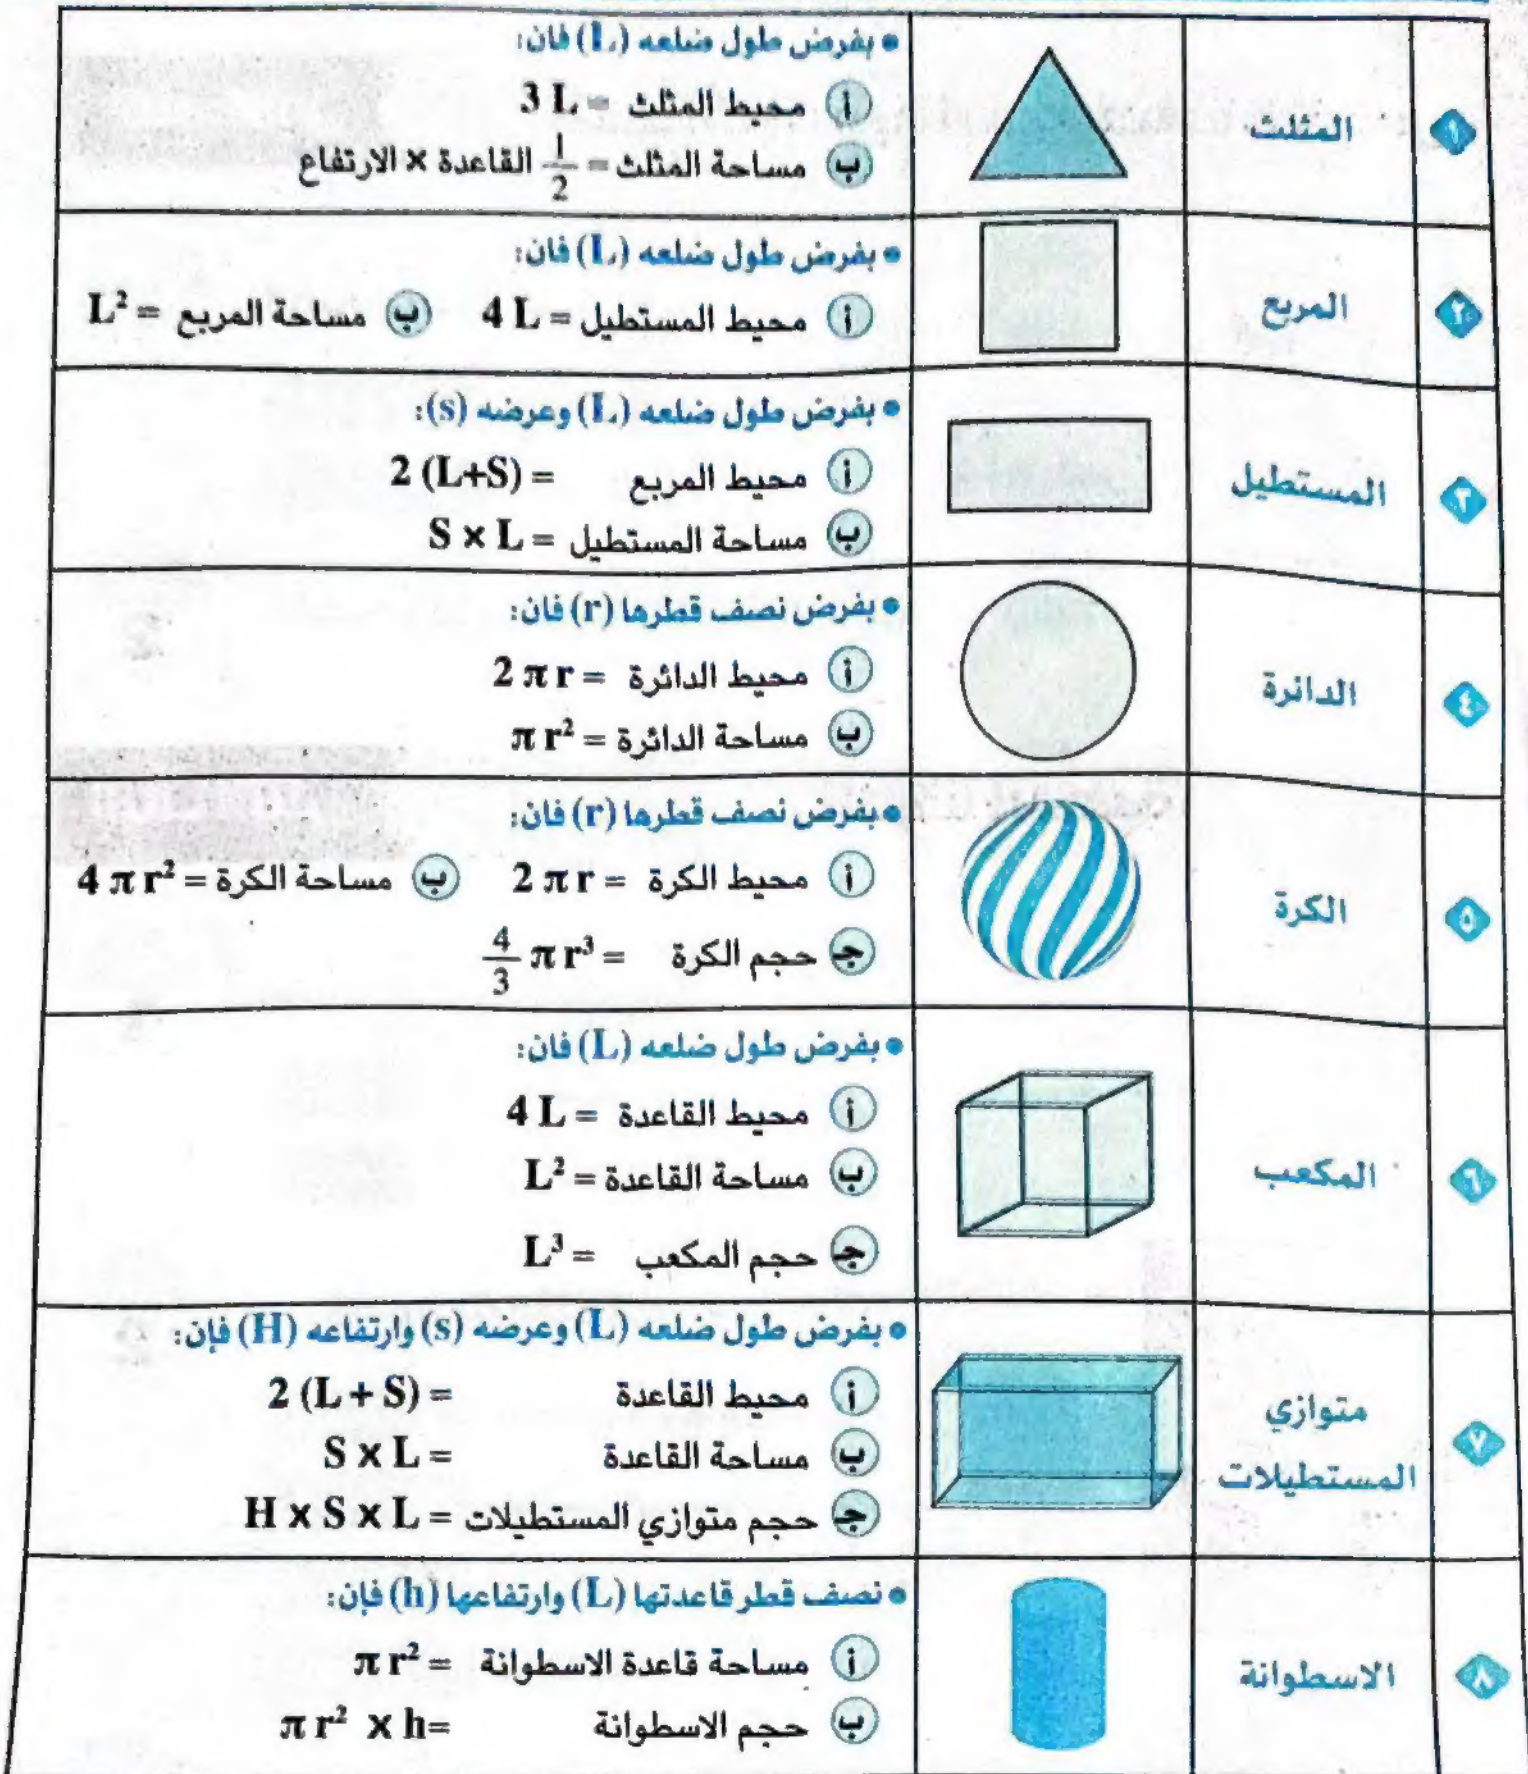 ١ المثلث
• بفرض طول ضلعه (L) فان:
أ محيط المثلث = 3 L
ب مساحة المثلث = 1/2 القاعدة × الارتفاع
٢ المربع
• بفرض طول ضلعه (L) فان:
أ محيط المستطيل = 4 L ب مساحة المربع = L²
٣ المستطيل
• بفرض طول ضلعه (L) وعرضه (s):
أ محيط المربع = 2 (L+S)
ب مساحة المستطيل = S × L
٤ الدائرة
• بفرض نصف قطرها (r) فان:
أ محيط الدائرة = 2 π r
ب مساحة الدائرة = π r²
٥ الكرة
• بفرض نصف قطرها (r) فان:
أ محيط الكرة = 2 π r ب مساحة الكرة = 4 π r²
ج حجم الكرة = 4/3 π r³
٦ المكعب
• بفرض طول ضلعه (L) فان:
أ محيط القاعدة = 4 L
ب مساحة القاعدة = L²
ج حجم المكعب = L³
٧ متوازي
المستطيلات
• بفرض طول ضلعه (L) وعرضه (s) وارتفاعه (H) فإن:
أ محيط القاعدة = 2 (L + S)
ب مساحة القاعدة = S × L
ج حجم متوازي المستطيلات = H × S × L
٨ الاسطوانة
• نصف قطر قاعدتها (L) وارتفاعها (h) فإن:
أ مساحة قاعدة الاسطوانة = π r²
ب حجم الاسطوانة = π r² × h